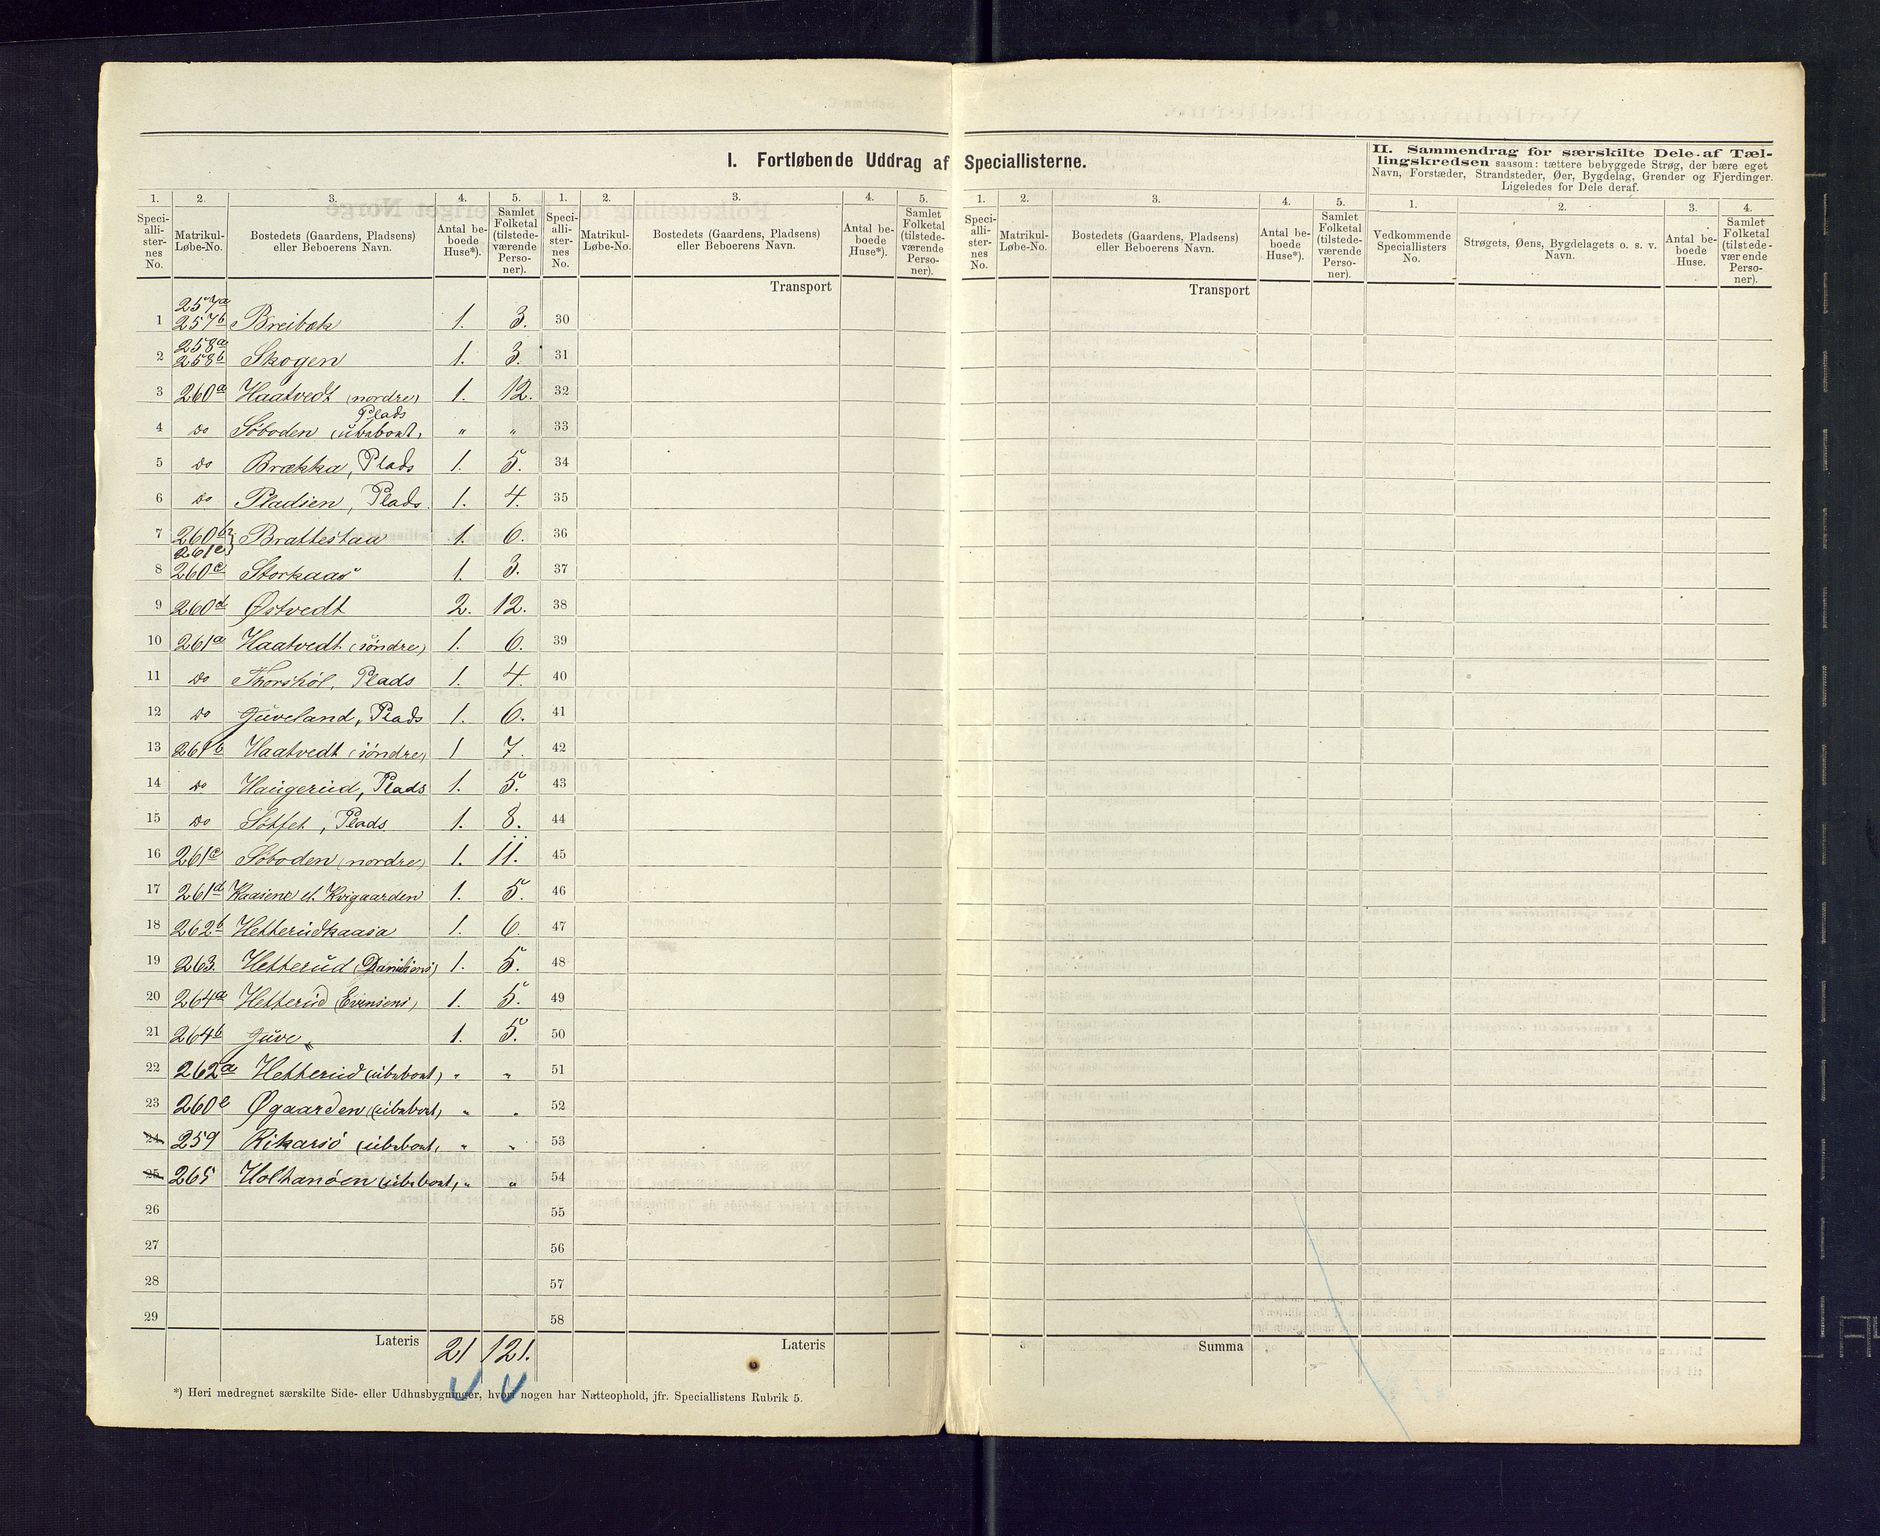 I. Fortløbende Uddrag af Speciallisterne.
II. Sammendrag for særskilte Dele af Tællingskredsen saasom: tættere bebyggede Strøg, der bære eget Navn, Forstæder, Strandsteder, Øer, Bygdelag, Grender og Fjerdinger. Ligeledes for Dele deraf.
1. 2. 3. 4. 5. 1. 2. 3. 4. 5. 1. 2. 3. 4. 5. 1. 2. 3. 4.
Speciallisternes No. Matrikul-Løbe-No. Bostedets (Gaardens, Pladsens) eller Beboerens Navn. Antal beboede Huse*). Samlet Folketal (tilstedeværende Personer).
Speciallisternes No. Matrikul-Løbe-No. Bostedets (Gaardens, Pladsens) eller Beboerens Navn. Antal beboede Huse*). Samlet Folketal (tilstedeværende Personer).
Speciallisternes No. Matrikul-Løbe-No. Bostedets (Gaardens, Pladsens) eller Beboerens Navn. Antal beboede Huse*). Samlet Folketal (tilstedeværende Personer).
Vedkommende Speciallisters No. Strøgets, Øens, Bygdelagets o. s. v. Navn. Antal beboede Huse. Samlet Folketal (tilstedeværende Personer).
Transport Transport
257a
1 257b Breibæk 1. 3. 30
258a
2 258b Skogen 1. 3. 31
3 260a Haatvedt (nordre) 1. 12. 32
Plads
4 Do Søboden (ubeboet) " " 33
5 Do Brækka, Plads 1. 5. 34
6 Do Pladsen, Plads. 1. 4. 35
7 260b Brattestaa 1. 6. 36
261e
8 260c Storkaas 1. 3. 37
9 260d Østvedt 2. 12. 38
10 261a Haatvedt (søndre) 1. 6. 39
11 Do Thorshol, Plads 1. 4. 40
12 Do Juveland, Plads 1. 6. 41
13 261b Haatvedt (søndre) 1 7. 42
14 Do Haugerud, Plads 1. 5. 43
15 Do Plads 1. 8. 44
16 261c Søboden (nordre) 1. 11. 45
17 261d Kaasene el. Kvigaarden 1. 5. 46
18 262b Hetterudkaasa 1. 6. 47
19 263. Hetterud (Danielsens) 1. 5. 48
20 264a Hetterud (Evensens) 1. 5. 49
21 264b Juve 1. 5. 50
22 262a Hetterud (ubeboet) " " 51
23 260e Øgaarden (ubeboet) " " 52
24 259 Rikarsø (ubeboet) " " 53
25 265 Holtanøen (ubeboet) " " 54
26 55
27 56
28 57
29 58
Lateris 21 121. Lateris Summa
*) Heri medregnet særskilte Side- eller Udhusbygninger, hvori nogen har Natteophold, jfr. Speciallistens Rubrik 5.